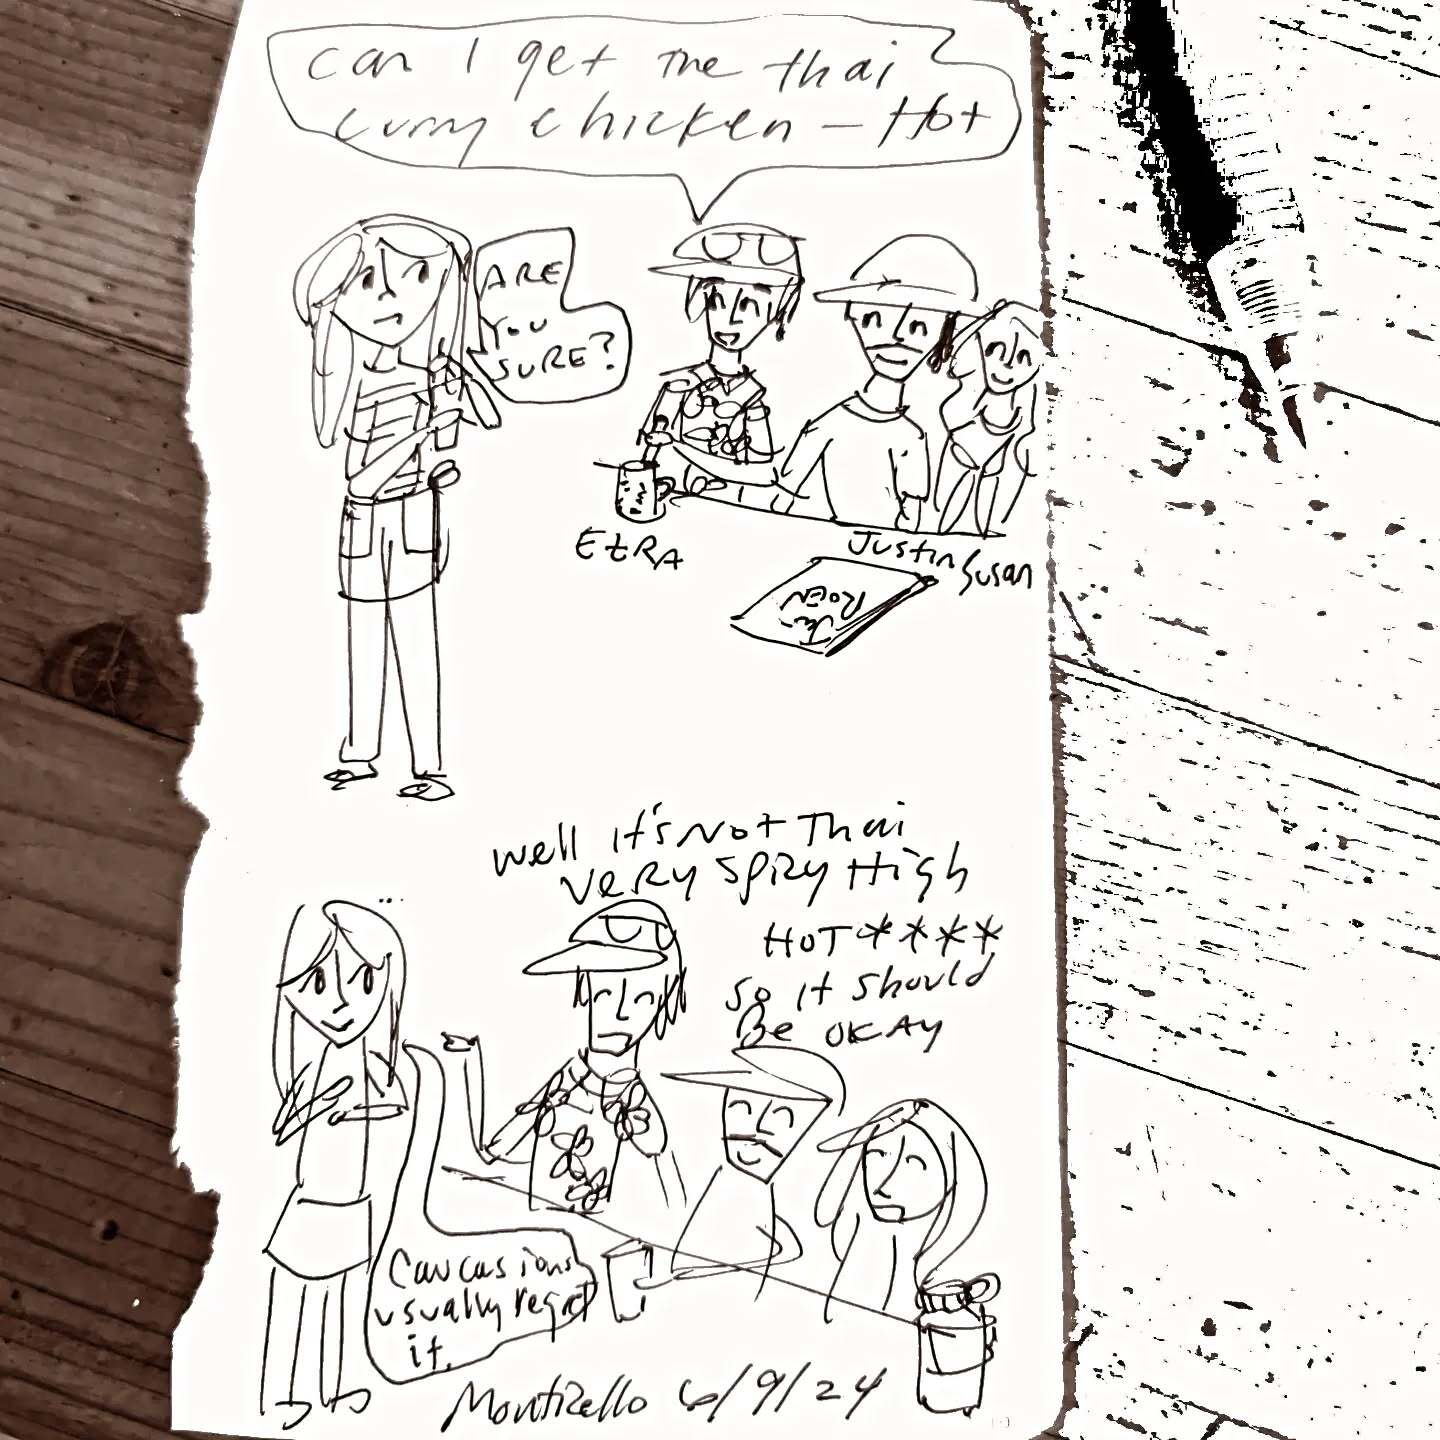 can I get the thai
curry chicken - Hot
ARE
YOU
SURE?
EZRA
Justin
Susan
well it's Not Thai
very spizy High
HOT * * * *
so it should
Be OKAY
Caucasions
usually regret
it.
Monticello 6/9/24